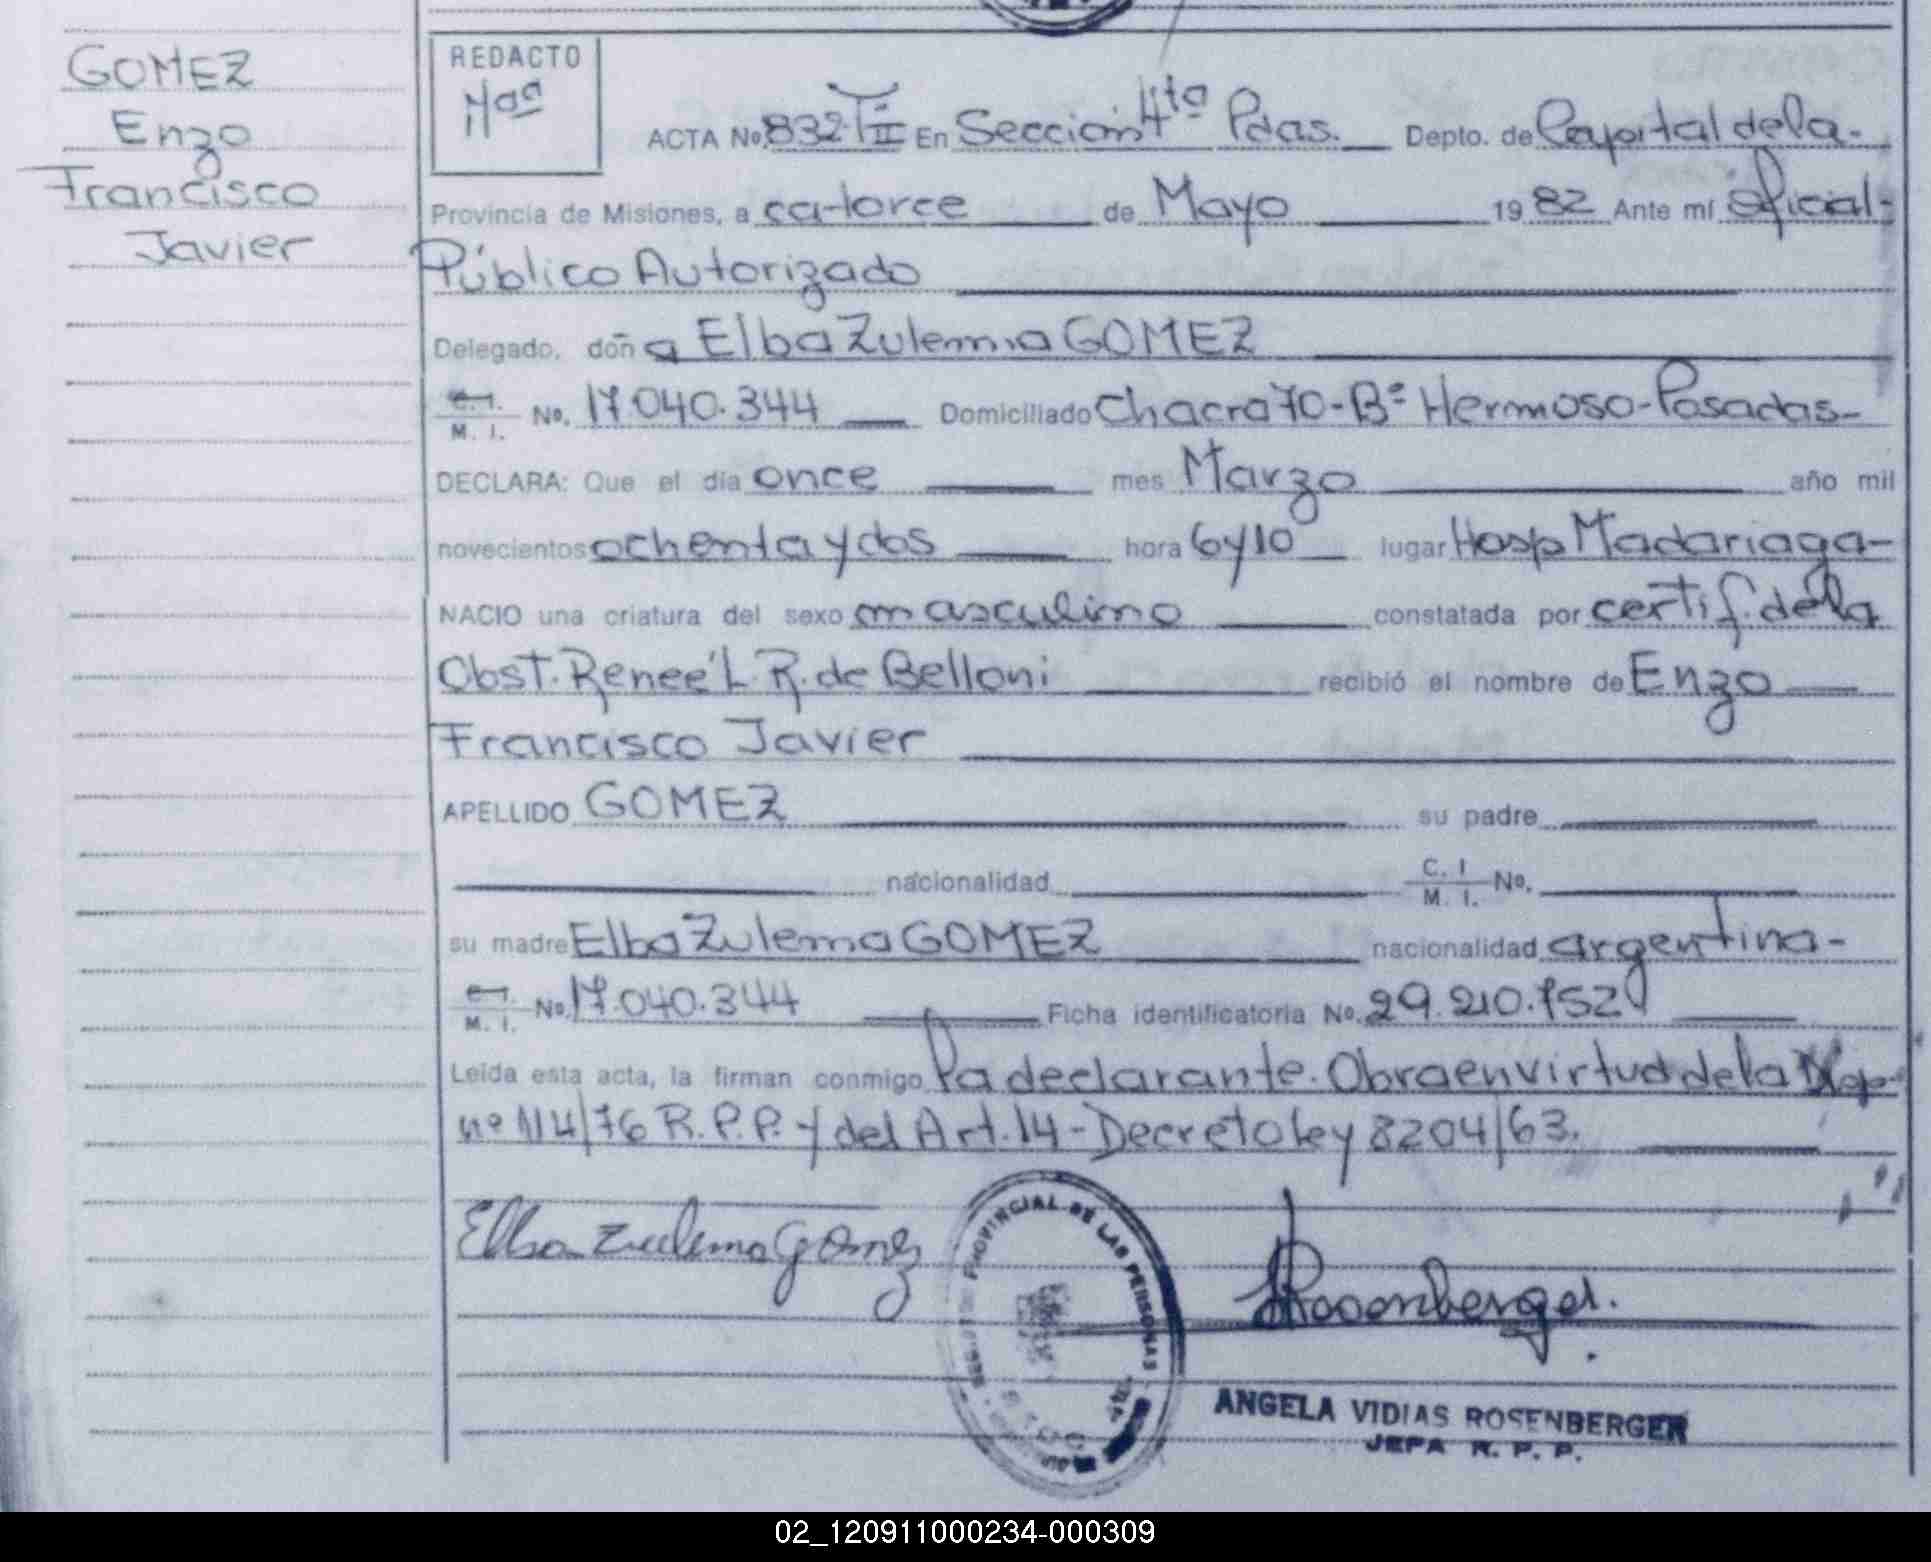 GOMEZ
Enzo
Francisco
Javier
REDACTO
Mªª
ACTA No. 832 T II En Sección 4ta Pdas. Depto. de Capital de la-
Provincia de Misiones, a catorce de Mayo 1982 Ante mí Oficial-
Público Autorizado
Delegado, doña Elba Zulema GOMEZ
C.I. M. I. No. 17.040.344 Domiciliado Chacra 70-Bº Hermoso-Posadas-
DECLARA: Que el día once mes Marzo año mil
novecientos ochenta y dos hora 6y10 lugar Hosp Madariaga-
NACIO una criatura del sexo masculino constatada por certif. de la
Obst. Reneé L. R. de Belloni recibió el nombre de Enzo
Francisco Javier
APELLIDO GOMEZ su padre
nacionalidad C. I M. I. No.
su madre Elba Zulema GOMEZ nacionalidad argentina-
C.I. M. I. No. 17.040.344 Ficha identificatoria No. 29.210.752
Leída esta acta, la firman conmigo la declarante. Obra en virtud de la
nº 114/76 R.P.P. y del Art. 14-Decreto ley 8204/63.
Elba Zulema Gomez
PROVINCIAL DE LAS PERSONAS
Rosenberger.
ANGELA VIDIAS ROSENBERGER
JEFA R. P. P.
02_120911000234-000309